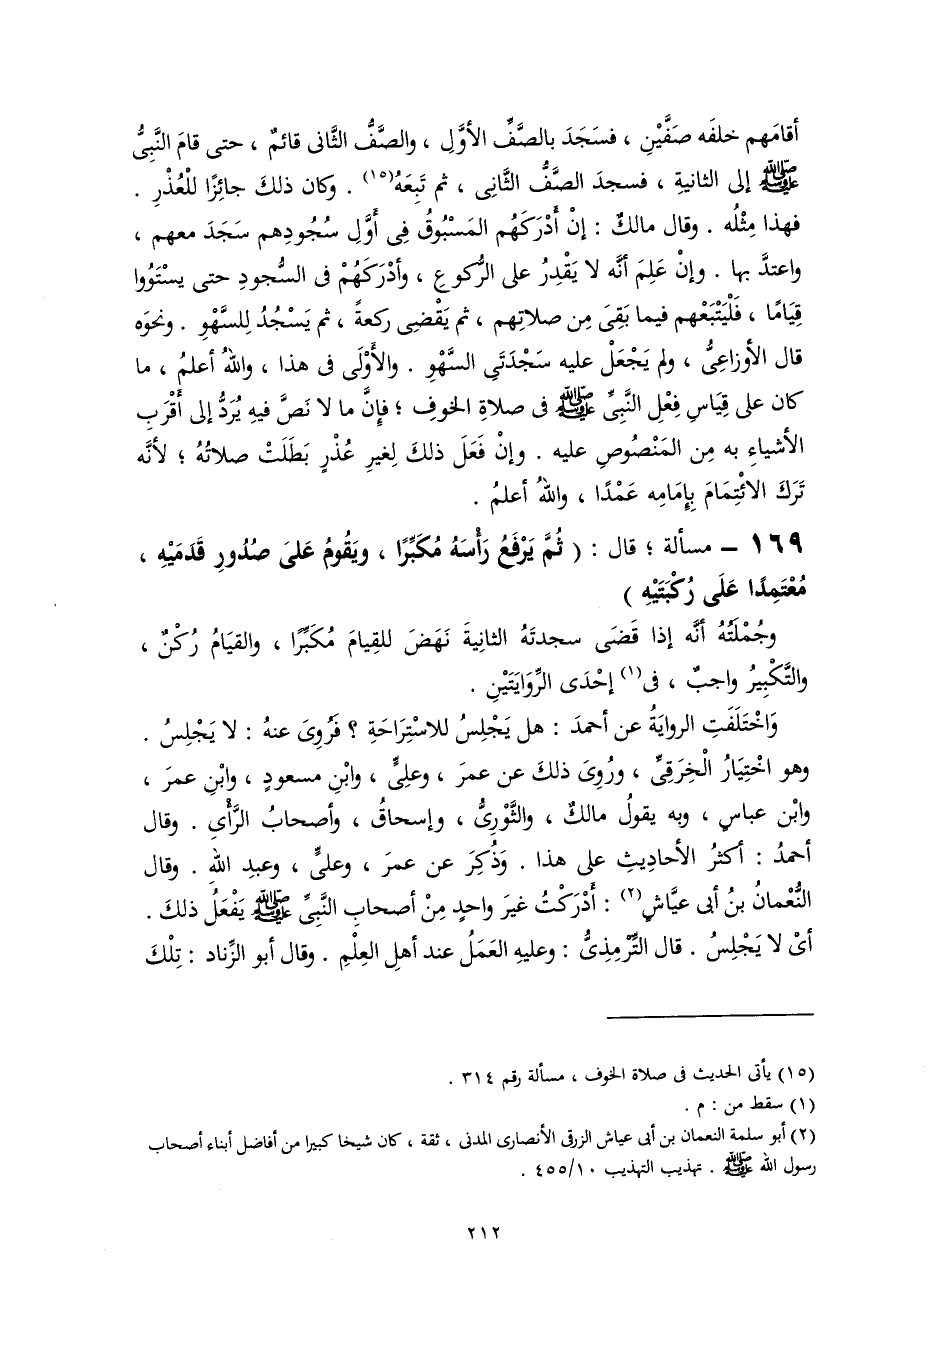 أقامَهم خلفَه صَفَّيْنِ ، فسَجَدَ بالصَّفِّ الأوَّلِ ، والصَّفُّ الثَّانى قائمٌ ، حتى قامَ النَّبِىُّ
ﷺ إلى الثانيةِ ، فسجدَ الصَّفُّ الثَّانِى ، ثم تَبِعَهُ(١٥) . وكان ذلكَ جائِزًا لْلعُذْرِ .
فهذا مِثْلُه . وقال مالكٌ : إنْ أَدْرَكَهُم المَسْبُوقُ فِى أوَّلِ سُجُودِهم سَجَدَ معهم ،
واعتدَّ بها . وإنْ عَلِمَ أنَّه لا يَقْدِرُ على الرُّكوعِ ، وأدْرَكَهُمْ فى السُّجودِ حتى يستَوُوا
قِيَامًا ، فَلْيَتْبَعْهم فيما بَقِىَ مِن صلاتِهم ، ثم يَقْضِى ركعةً ، ثم يَسْجُدُ لِلسَّهْوِ . ونحوَه
قال الأوزاعِىُّ ، ولم يَجْعَلْ عليه سَجْدَتَىِ السَّهْوِ . والأوْلَى فى هذا ، واللهُ أعلمُ ، ما
كان على قِيَاسِ فِعْلِ النَّبِىِّ ﷺ فى صلاةِ الخوفِ ؛ فإنَّ ما لا نَصَّ فيه يُرَدُّ إلى أَقْرَبِ
الأشياءِ به مِن المَنْصُوصِ عليه . وإنْ فَعَلَ ذلكَ لِغيرِ عُذْرٍ بَطَلَتْ صلاتُهُ ؛ لأنَّه
تَرَكَ الائْتِمَامَ بِإِمَامِه عَمْدًا ، واللهُ أعلمُ .
١٦٩ – مسألة ؛ قال : ( ثُمَّ يَرْفَعُ رَأْسَهُ مُكَبِّرًا ، ويَقُومُ عَلىَ صُدُورِ قَدَمَيْهِ ،
مُعْتَمِدًا عَلَى رُكْبَتَيْهِ )
وجُمْلَتُهُ أنَّه إذا قَضَى سجدتَهُ الثانِيةَ نَهَضَ للقِيامِ مُكَبِّرًا ، والقيَامُ رُكْنٌ ،
والتَّكْبِيرُ واجبٌ ، فى(١) إحْدَى الرِّوَايَتَيْنِ .
وَاخْتَلَفَتِ الروايَةُ عن أحمدَ : هل يَجْلِسُ للاسْتِرَاحَةِ ؟ فَرُوِىَ عنهُ : لا يَجْلِسُ .
وهو اخْتِيَارُ الْخِرَقِىِّ ، ورُوِىَ ذلكَ عن عمرَ ، وعلىٍّ ، وابْنِ مسعودٍ ، وابْنِ عمرَ ،
وابْن عباسٍ ، وبه يقولُ مالكٌ ، والثَّوْرِىُّ ، وإسحاقُ ، وأصحابُ الرَّأْىِ . وقال
أحمدُ : أكثرُ الأحاديثِ على هذا . وَذُكِرَ عن عمرَ ، وعلىٍّ ، وعبدِ اللهِ . وقال
النُّعْمانُ بنُ أبى عيَّاشٍ(٢) : أَدْرَكْتُ غيرَ واحدٍ مِنْ أصحابِ النَّبِىِّ ﷺ يَفْعَلُ ذلكَ .
أىْ لا يَجْلِسُ . قال التِّرْمِذِىُّ : وعليهِ العَمَلُ عند أهلِ العِلْمِ . وقال أبو الزِّناد : تِلْكَ
(١٥) يأتى الحديث فى صلاة الخوف ، مسألة رقم ٣١٤ .
(١) سقط من : م .
(٢) أبو سلمة النعمان بن أبى عياش الزرقى الأنصارى المدنى ، ثقة ، كان شيخا كبيرا من أفاضل أبناء أصحاب
رسول الله ﷺ . تهذيب التهذيب ٤٥٥/١٠ .
٢١٢